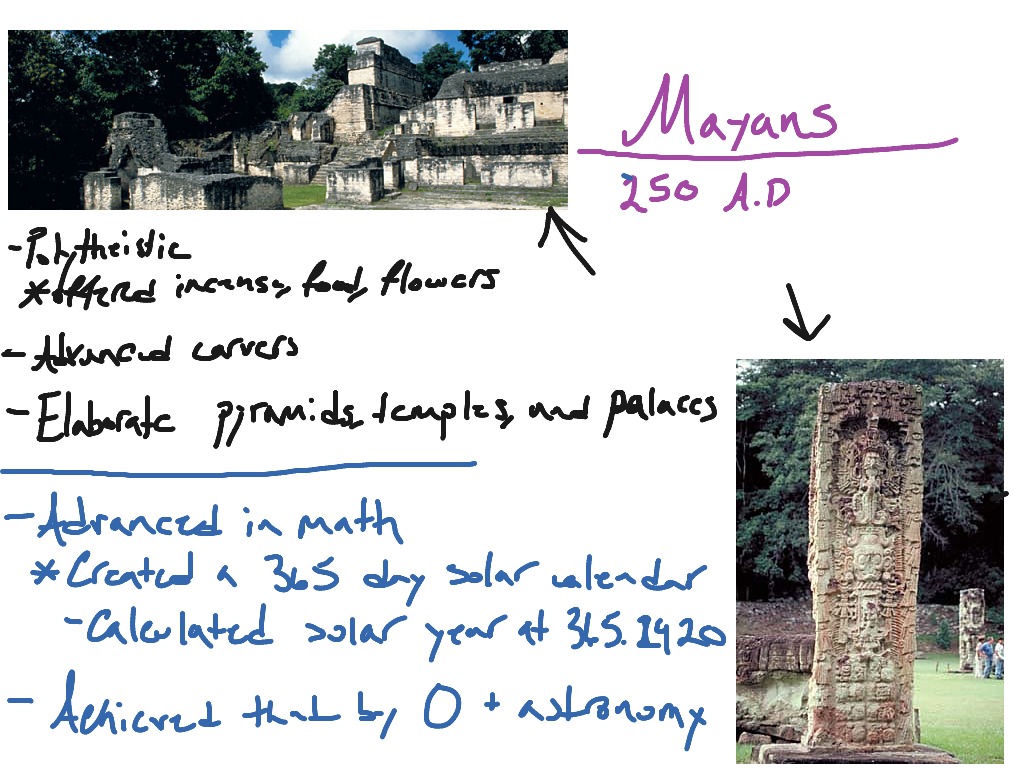 Mayans
250 A.D
- Polytheistic
*offered incense, food, flowers
- Advanced carvers
- Elaborate pyramids, temples, and palaces
- Advanced in math
* Created a 365 day solar calendar
- Calculated solar year at 365.2420
- Achieved that by 0 + astronomy